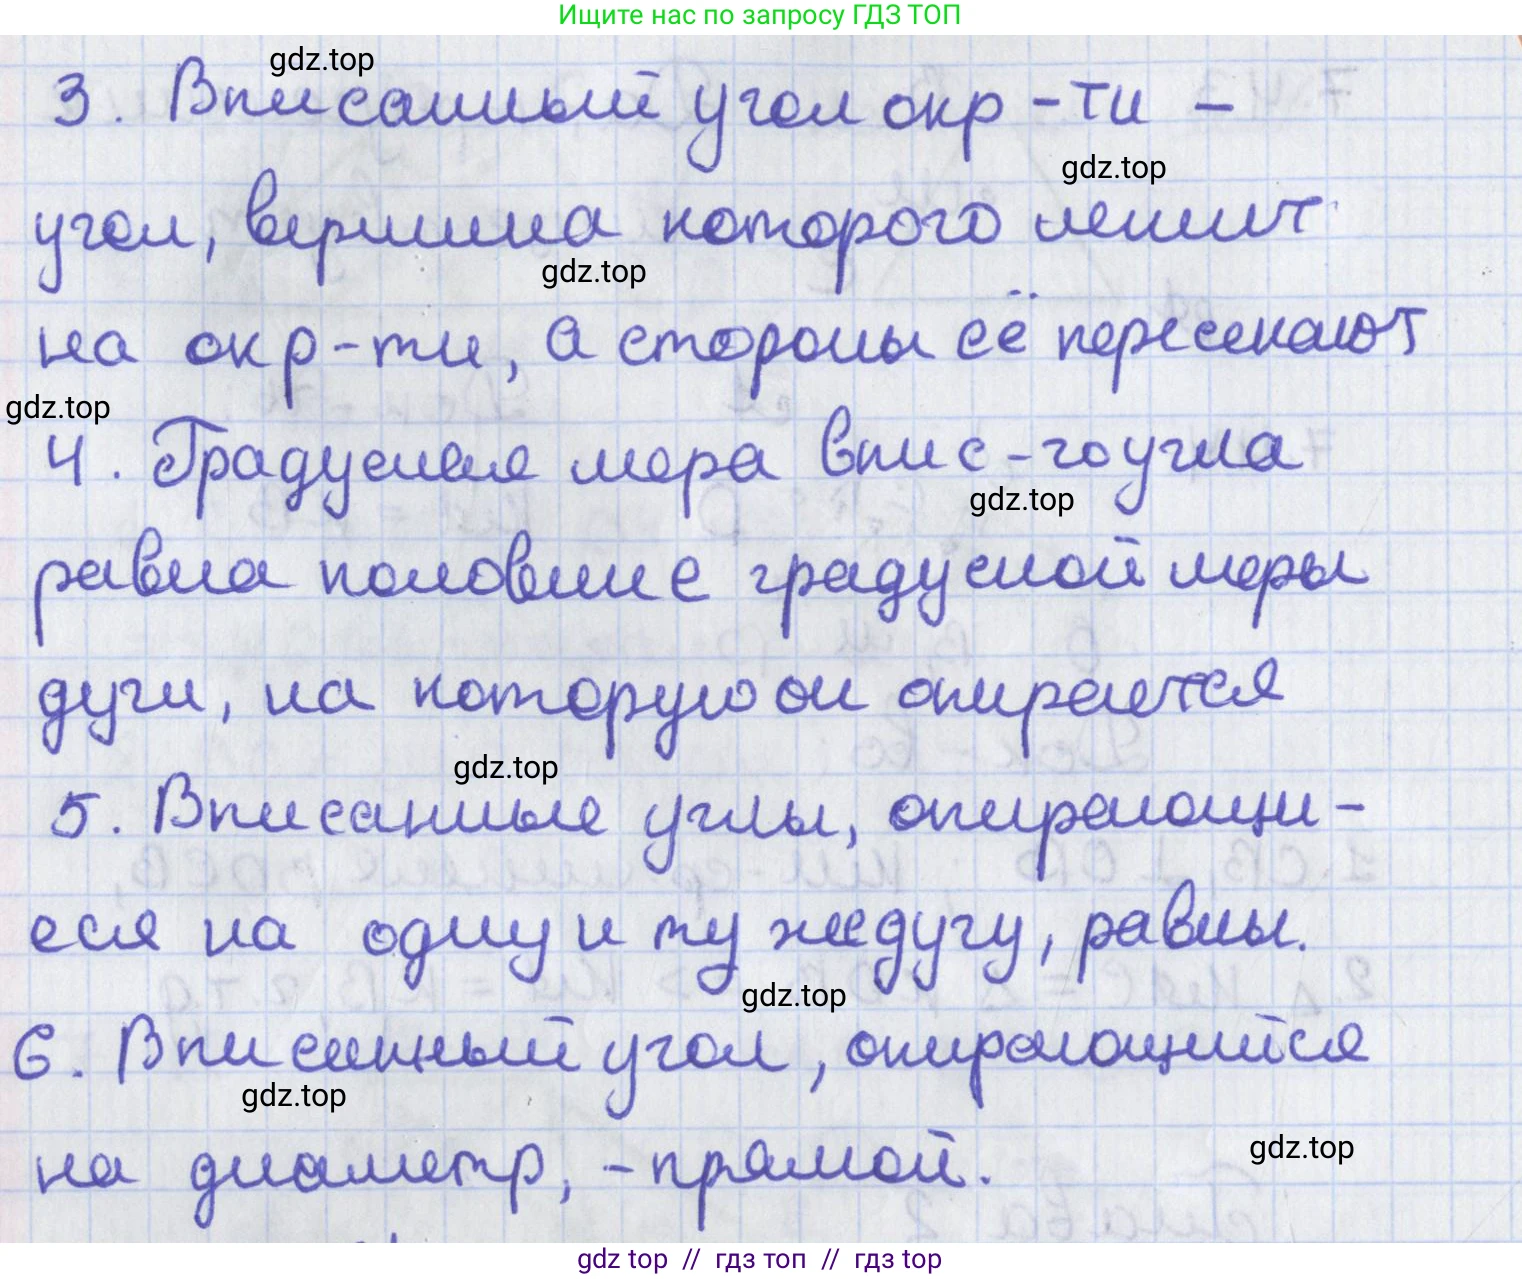 Ищите нас по запросу ГДЗ ТОП
gdz.top
3. Вписанный угол окр-ти -
gdz.top
угол, вершина которого лежит
gdz.top
на окр-ти, а стороны её пересекают
gdz.top
4. Градусная мера впис-го угла
gdz.top
равна половине градусной меры
дуги, на которую он опирается
gdz.top
5. Вписанные углы, опирающи-
еся на одну и ту же дугу, равны.
gdz.top
6. Вписанный угол, опирающийся
gdz.top
на диаметр, - прямой.
gdz.top
gdz top // гдз топ // гдз top